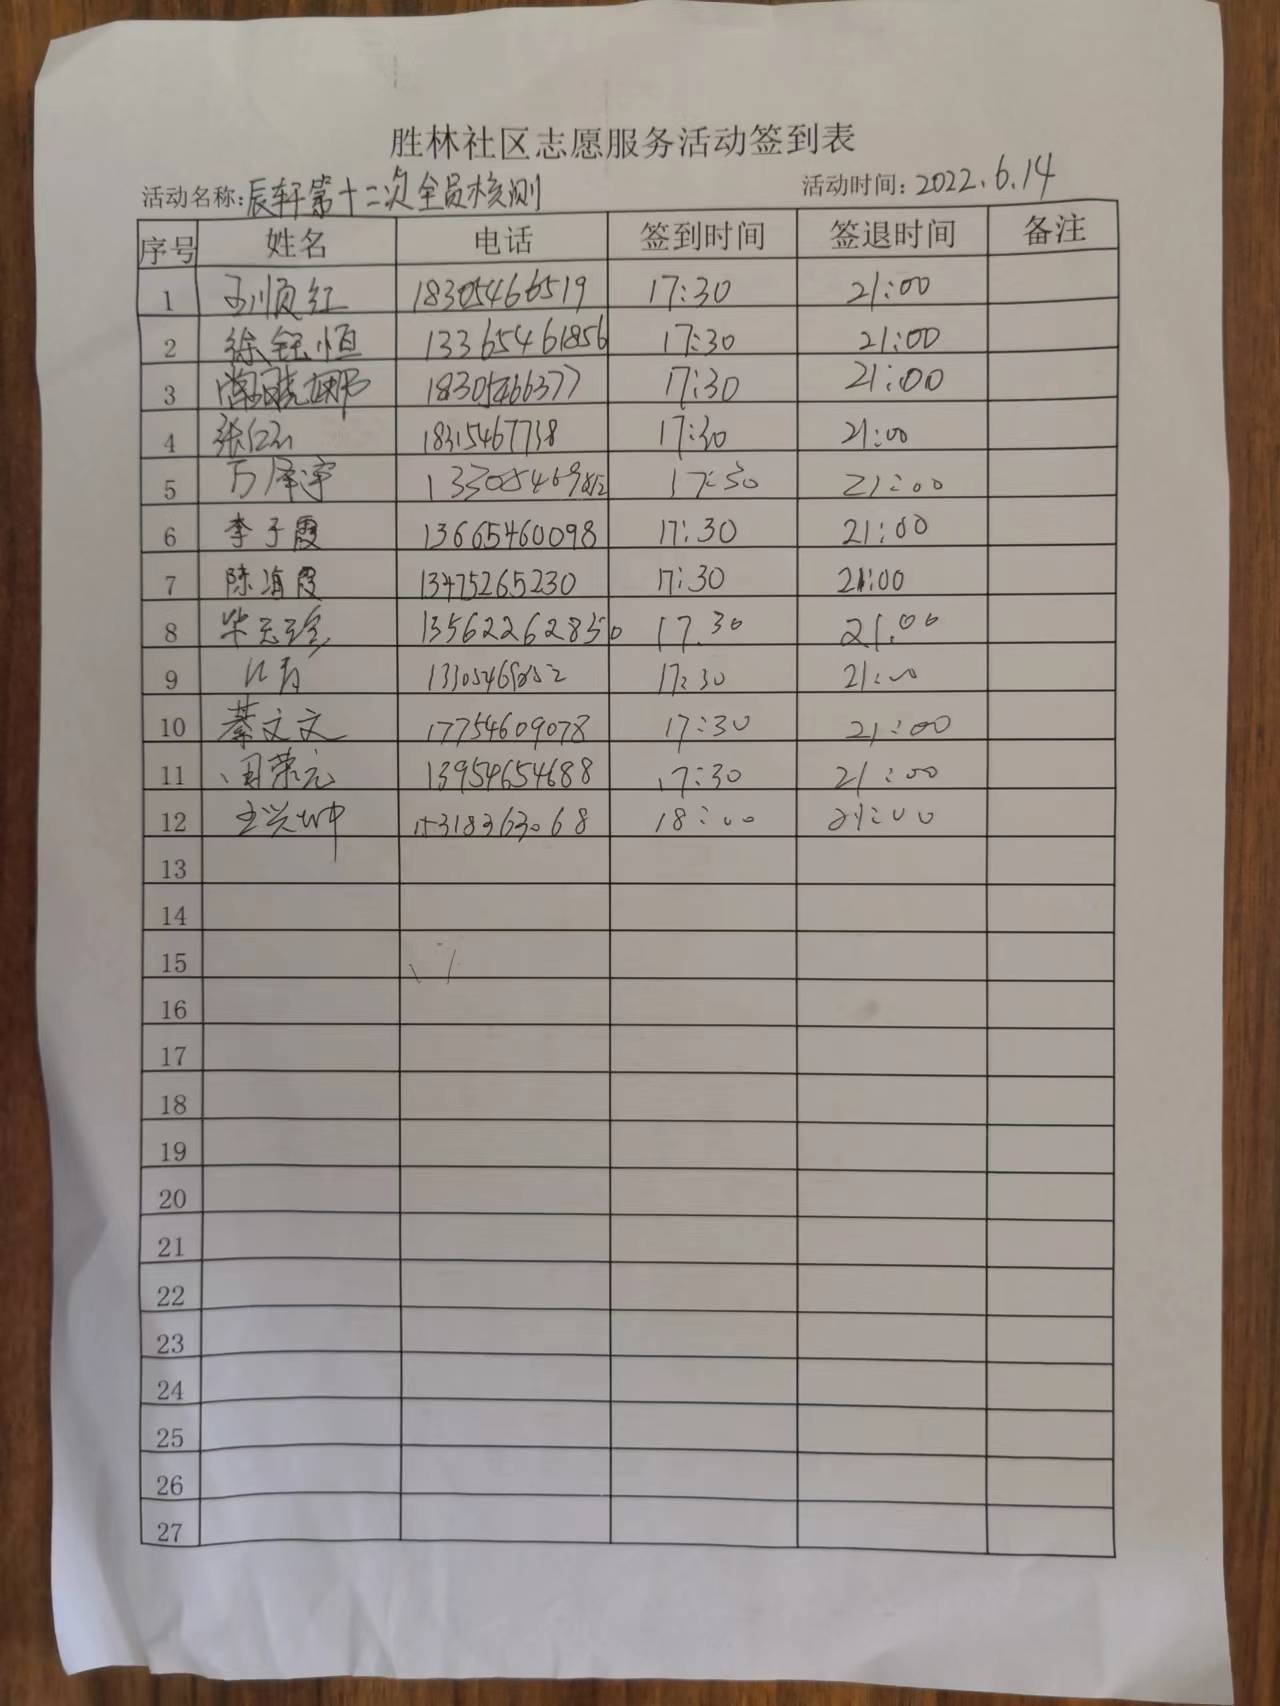 胜林社区志愿服务活动签到表
活动名称:辰轩第十二次全员核测 活动时间:2022.6.14
序号 姓名 电话 签到时间 签退时间 备注
1 顺红 18305466519 17:30 21:00
2 徐钰恒 13365461856 17:30 21:00
3 18305466377 17:30 21:00
4 张 18315467738 17:30 21:00
5 万泽宇 17:30 21:00
6 李子霞 13665460098 17:30 21:00
7 陈海霞 13475265230 17:30 21:00
8 13562262850 17.30 21.00
9 17:30 21:00
10 綦文文 17754609078 17:30 21:00
11 周荣元 13954654688 17:30 21:00
12 王兴坤 15318363068 18:00 21:00
13
14
15
16
17
18
19
20
21
22
23
24
25
26
27